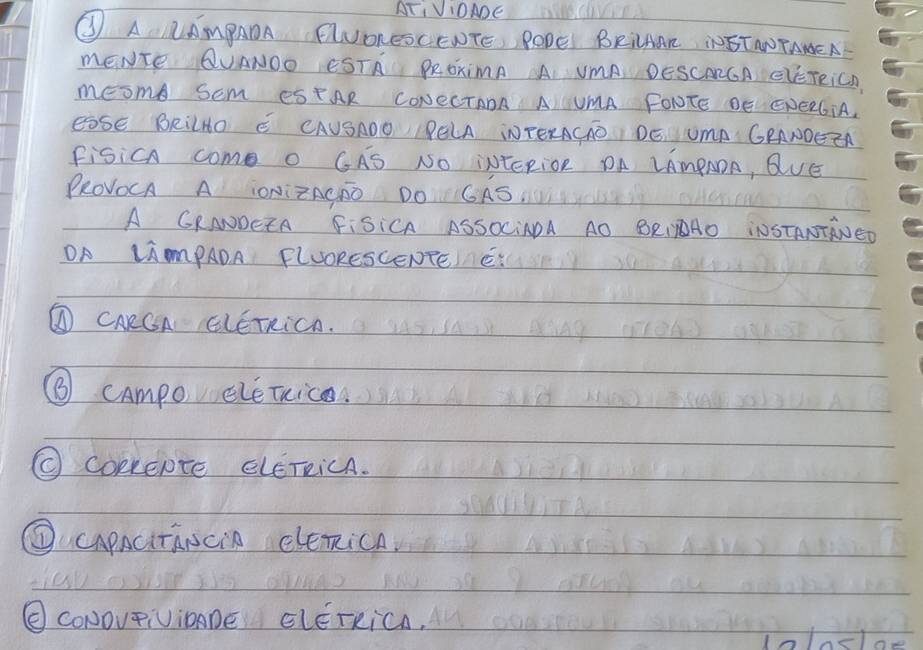 ATIVIDADE
① A LÂMPADA FLUORESCENTE PODE BRILHAR INSTANTANEA-
MENTE QUANDO ESTÁ PRÓXIMA A UMA DESCARGA ELÉTRICA,
MESMO SEM ESTAR CONECTADA A UMA FONTE DE ENERGIA.
ESSE BRILHO É CAUSADO PELA INTERAÇÃO DE UMA GRANDEZA
FÍSICA COM O GÁS NO INTERIOR DA LÂMPADA, QUE
PROVOCA A IONIZAÇÃO DO GÁS.
A GRANDEZA FÍSICA ASSOCIADA AO BRILHO INSTANTÂNEO
DA LÂMPADA FLUORESCENTE É:
Ⓐ CARGA ELÉTRICA.
Ⓑ CAMPO ELÉTRICO.
Ⓒ CORRENTE ELÉTRICA.
Ⓓ CAPACITÂNCIA ELETRICA.
Ⓔ CONDUTIVIDADE ELÉTRICA.